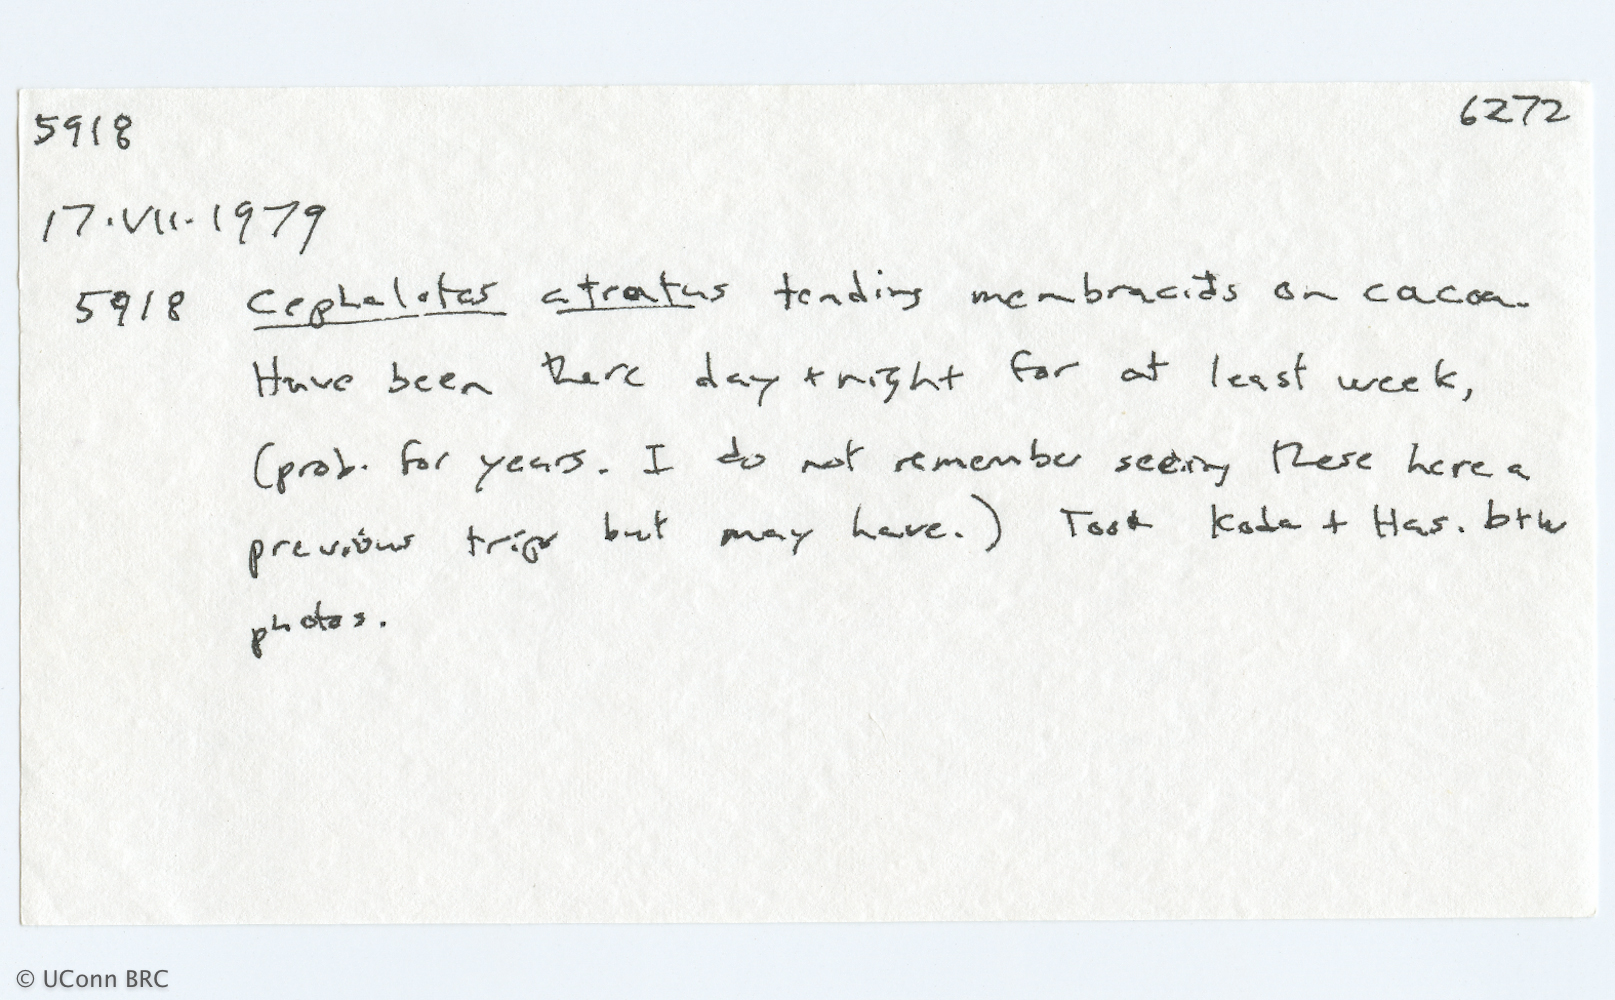 5918 6272
17.VII.1979
5918 Cephalotes atratus tending membracids on cacoa.
Have been there day + night for at least week,
(prob. for years. I do not remember seeing these here a
previous trips but may have.) Took Koda + Has. b+w
photos.
© UConn BRC